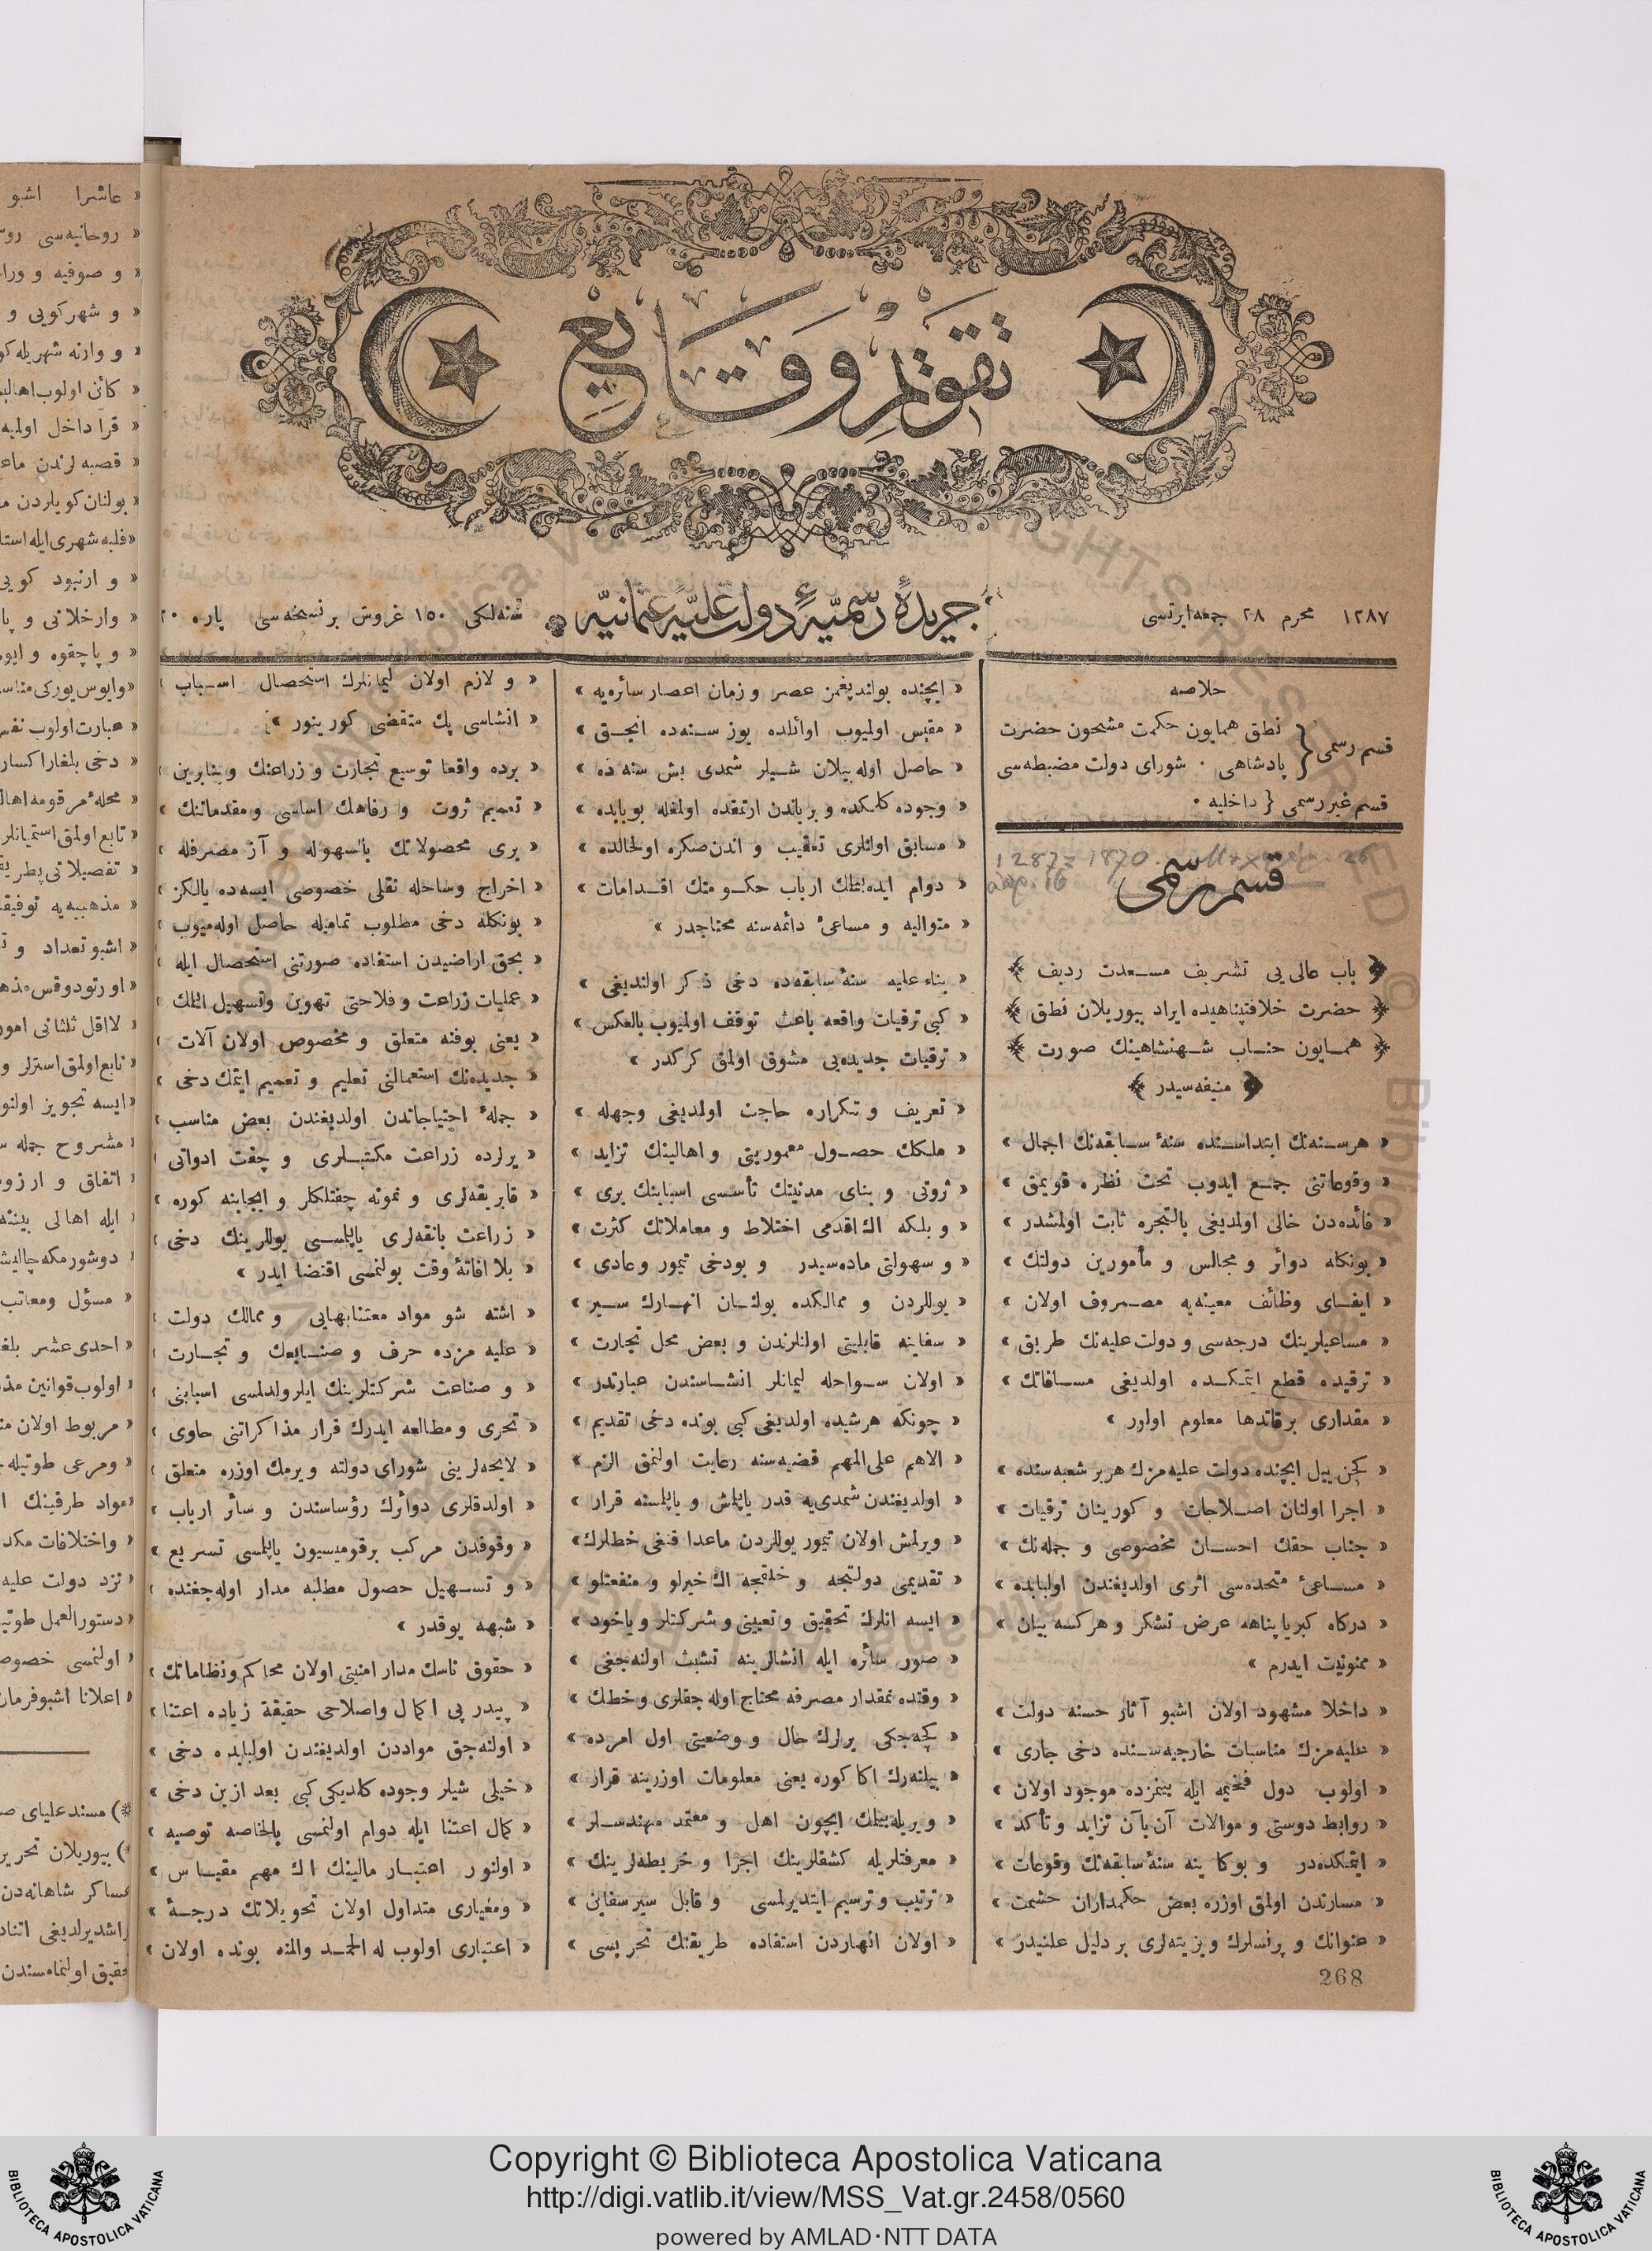 تقويم وقايع
١٢٨٧ محرم ٢٨ جمعه ايرتسى
جريدۀ رسميۀ دولت عليۀ عثمانيه
سنه‌لكى ١٥٠ غروش بر نسخه‌سى پاره ٢٠
خلاصه
قسم رسمى { نطق همايون حكمت مشحون حضرت
پادشاهى · شوراى دولت مضبطه‌سى
قسم غير رسمى { داخليه ·
1287 = 1870
قسم رسمى
﴿ باب عالى‌يى تشريف مسعدت رديف ﴾
﴿ حضرت خلافتپناهيده ايراد بيوريلان نطق ﴾
﴿ همايون جناب شهنشاهينك صورت ﴾
﴿ منيفه‌سيدر ﴾
« هر سنه‌نك ابتداسنده سنۀ سابقه‌نك اجمال »
« وقوعاتنى جمع ايدوب تحت نظره قويمق »
« فائده‌دن خالى اولمديغى بالتجربه ثابت اولمشدر »
« بونكله دوائر و مجالس و مأمورين دولتك »
« ايفاى وظائف معينه‌يه مصروف اولان »
« مساعيلرينك درجه‌سى و دولت عليه‌نك طريق »
« ترقيده قطع ايتمكده اولديغى مسافاتك »
« مقدارى برقاتدها معلوم اولور »
« كچن ييل ايچنده دولت عليه‌مزك هر بر شعبه‌سنده »
« اجرا اولنان اصلاحات و كورينان ترقيات »
« جناب حقك احسان مخصوصى و جمله‌نك »
« مساعئ متحده‌سى اثرى اولديغندن اولبابده »
« دركاه كبريا پناهه عرض تشكر و هركسه بيان »
« ممنونيت ايدرم »
« داخلا مشهود اولان اشبو آثار حسنه دولت »
« عليه‌مزك مناسبات خارجيه‌سنده دخى جارى »
« اولوب دول فخيمه ايله بينمزده موجود اولان »
« روابط دوستى و موالات آن بآن تزايد و تأكد »
« ايتمكده‌در و بوكا ينه سنۀ سابقه‌نك وقوعات »
« مسارندن اولمق اوزره بعض حكمداران حشمت »
« عنوانك و پرنسلرك ويزيته‌لرى بر دليل علنيدر »
268
« ايچنده بولنديغمز عصر و زمان اعصار سائره‌يه »
« مقيس اولميوب اوائلده يوز سنه‌ده انجق »
« حاصل اوله بيلان شيلر شمدى بش سنه ده »
« وجوده كلمكده و بر ياندن ارتمقده اولمغله بوبابده »
« مسابق اوائلرى تعقيب و اندن صكره اولحالده »
« دوام ايده‌بيلمك ارباب حكومتك اقدامات »
« متواليه و مساعئ دائمه‌سنه محتاجدر »
« بناء عليه سنۀ سابقه‌ده دخى ذكر اولنديغى »
« كبى ترقيات واقعه باعث توقف اولميوب بالعكس »
« ترقيات جديده‌يى مشوق اولمق كركدر »
« تعريف و تكراره حاجت اولمديغى وجهله »
« ملكك حصول معموريتى و اهالينك تزايد »
« ثروتى و بناى مدنيتك تأسسى اسبابنك برى »
« و بلكه اك اقدمى اختلاط و معاملاتك كثرت »
« و سهولتى ماده‌سيدر و بودخى تيمور وعادى »
« يوللردن و ممالكده بولنان انهارك سير »
« سفاينه قابليتى اولنلرندن و بعض محل تجارت »
« اولان سواحله ليمانلر انشاسندن عبارتدر »
« چونكه هرشيده اولديغى كبى بونده دخى تقديم »
« الاهم على المهم قضيه‌سنه رعايت اولنمق الزم »
« اولديغندن شمدى‌يه قدر ياپلمش و ياپلمسنه قرار »
« ويرلمش اولان تيمور يوللردن ماعدا قنغى خطلرك »
« تقديمى دولتجه و خلقجه اك خيرلو و منفعتلو »
« ايسه انلرك تحقيق و تعيينى و شركتلر و ياخود »
« صور سائره ايله انشالرينه تشبث اولنه‌جغى »
« وقتده نمقدار مصرفه محتاج اوله‌جقلرى و خطك »
« كچه‌جكى يرلرك حال و وضعيتى اول امرده »
« بيلنه‌رك اكا كوره يعنى معلومات اوزرينه قرار »
« ويريله‌بيلمك ايچون اهل و معتمد مهندسلر »
« معرفتلريله كشفلرينك اجرا و خريطه‌لرينك »
« ترتيب و ترسيم ايتديرلمسى و قابل سير سفاين »
« اولان انهاردن استفاده طريقنك تحريسى »
« و لازم اولان ليمانلرك استحصال اسباب »
« انشاسى پك متقضى كورينور »
« برده واقعا توسيع تجارت و زراعتك و بنابرين »
« تعميم ثروت و رفاهك اساسى و مقدماتنك »
« برى محصولاتك بالسهوله و آز مصرفله »
« اخراج وساحله نقلى خصوصى ايسه‌ده يالكز »
« بونكله دخى مطلوب تماميله حاصل اوله‌ميوب »
« بحق اراضيدن استفاده صورتنى استحصال ايله »
« عمليات زراعت و فلاحتى تهوين وتسهيل ايتمك »
« يعنى بوفنه متعلق و مخصوص اولان آلات »
« جديده‌نك استعمالنى تعليم و تعميم ايتمك دخى »
« جملۀ احتياجاتدن اولديغندن بعض مناسب »
« يرلرده زراعت مكتبلرى و چفت ادواتى »
« فابريقه‌لرى و نمونه چفتلكلر و ايجابنه كوره »
« زراعت بانقه‌لرى ياپلمسى يوللرينك دخى »
« بلا افاتۀ وقت بولنمسى اقتضا ايدر »
« اشته شو مواد معتنابهايى و ممالك دولت »
« عليه مزده حرف و صنايعك و تجارت »
« و صناعت شركتلرينك ايلرولدلمسى اسبابنى »
« تحرى و مطالعه ايدرك قرار مذاكراتنى حاوى »
« لايحه‌لرينى شوراى دولته ويرمك اوزره متعلق »
« اولدقلرى دوائرك رؤساسندن و سائر ارباب »
« وقوفدن مركب برقوميسيون ياپلمسى تسريع »
« و تسهيل حصول مطلبه مدار اوله‌جغنده »
« شبهه يوقدر »
« حقوق ناسك مدار امنيتى اولان محاكم و نظاماتك »
« پيدر پى اكمال واصلاحى حقيقة زياده اعتنا »
« اولنه‌جق مواددن اولديغندن اولبابده دخى »
« خيلى شيلر وجوده كلديكى كبى بعد ازين دخى »
« كمال اعتنا ايله دوام اولنمسى بالخاصه توصيه »
« اولنور اعتبار مالينك اك مهم مقياس »
« ومعيارى متداول اولان تحويلاتك درجۀ »
« اعتبارى اولوب له الحمد والمنه بونده اولان »
« عاشرا اشبو
« روحانيه‌سى
« و صوفيه و
« و شهركويى و
« و وارنه شهريله
« كائن اولوب
« قرا داخل
« قصبه لرندن
« بولنان كويلردن
« فلبه شهرى ايله
« و ارنبود كويى
« وارخلانى و
« و پاچقوه
« عبارت اولوب
« دخى
« محلۀ مرقومه
« تابع اولمق
« تفصيلاتى
« مذهبيه‌يه
« اشبو تعداد و
« لااقل ثلثانى
« تابع اولمق
« ايسه تجويز
« مشروح جمله
« اتفاق و
« ايله اهالى
« دوشورمكه
« مسؤل ومعاتب
« احدى عشر
« اولوب قوانين
« مربوط اولان
« ومرعى طوتيله
« مواد طرفينك
« واختلافات
« نزد دولت عليه
« دستورالعمل
« اولنمسى
« اعلانا
مسند علياى
بيوريلان
عساكر شاهانه‌دن
Copyright © Biblioteca Apostolica Vaticana
http://digi.vatlib.it/view/MSS_Vat.gr.2458/0560
powered by AMLAD·NTT DATA
BIBLIOTECA APOSTOLICA VATICANA
BIBLIOTECA APOSTOLICA VATICANA